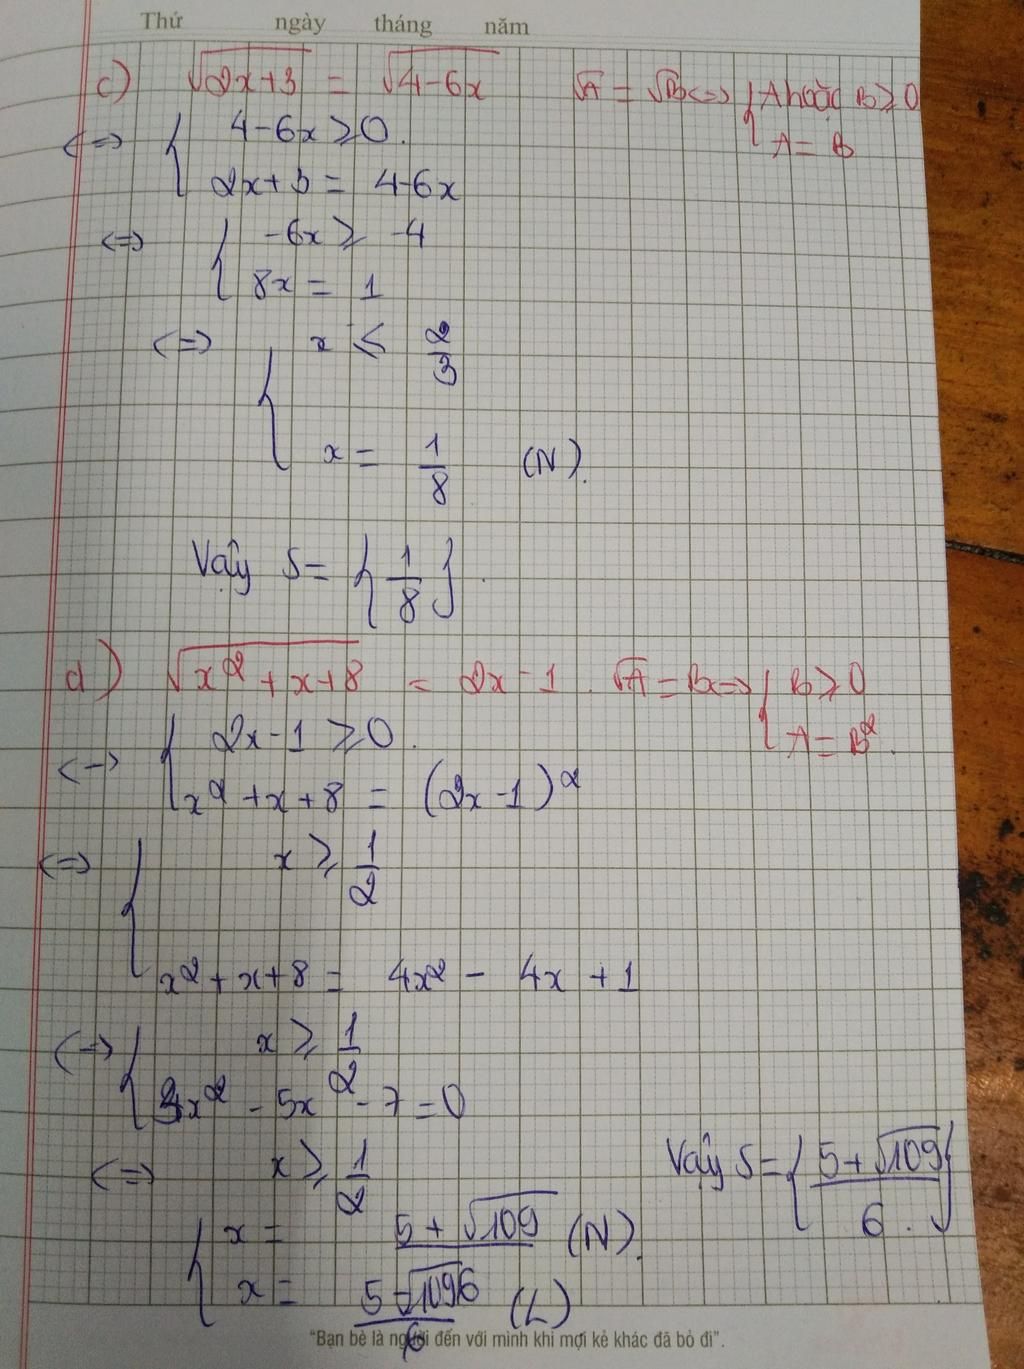 Thứ ngày tháng năm
c) √(2x+3) = √(4-6x) √A = √B <=> { A hoặc B ≥ 0
A = B
<=> { 4-6x ≥ 0.
2x+3 = 4-6x
<=> { -6x ≥ -4
8x = 1
<=> { x ≤ 2/3
x = 1/8 (N).
Vậy S = {1/8}.
d) √(x²+x+8) = 2x-1. √A = B <=> { B ≥ 0
A = B².
<=> { 2x-1 ≥ 0.
x²+x+8 = (2x-1)²
<=> { x ≥ 1/2
x²+x+8 = 4x² - 4x + 1
<=> { x ≥ 1/2
3x² - 5x - 7 = 0
<=> { x ≥ 1/2
x = (5+√109)/6 (N).
x = (5-√109)/6 (L)
Vậy S = {(5+√109)/6.}
"Bạn bè là người đến với mình khi mọi kẻ khác đã bỏ đi".